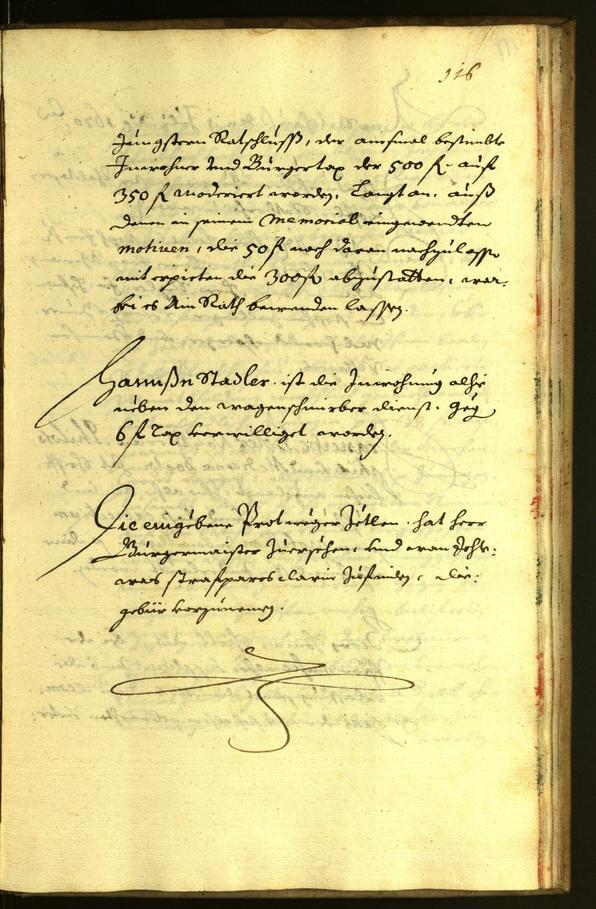 116
Jüngstern Ratschluss, der anfmal bestimbte
Inwohner vnd Bürgertax der 500 fl auf
350 fl moderiert worden, langt an, auß
denen in seinem Memorial eingewendten
motiven, die 50 fl noch daran nachzulassen
mit erpieten die 300 fl abzustatten, war:
bei es Ain Rath bewenden lassen.
Hannßn Stadler ist die Inwohnung alhie
neben den wagenschmirber dienst geg
6 fl Tax verwilliget worden.
Die eingebene Protweger Zetlen hat herr
Bürgermaister Zuersehen, vnd wan Jeht:
was straffpares darin Zufinden, die:
gebür vorzunemen.